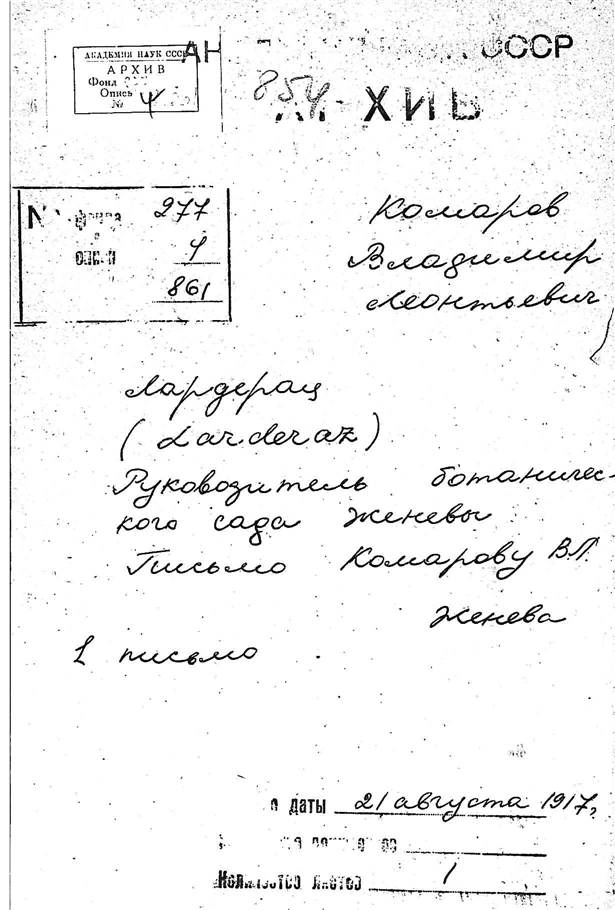 АКАДЕМИЯ НАУК СССР
АРХИВ
Фонд
Опись
№ 4
АН СССР
854
№ фонда 277
описи 4
861
Комаров
Владимир
Леонтьевич
Лардерац
(Larderaz)
Руководитель ботаничес-
кого сада Женевы
Письмо Комарову В.Л.
Женева
1 письмо
даты 21 августа 1917,
Количество листов 1